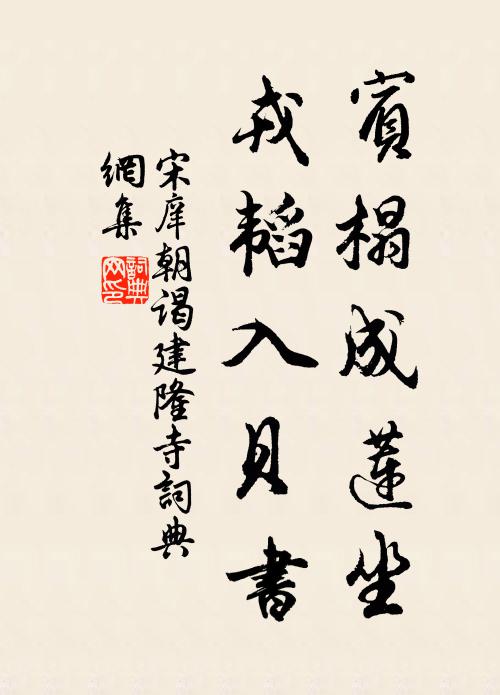 賓榻成蓮坐
戎韜入貝書
宋庠朝謁建隆寺詞典
網集
詞典網印